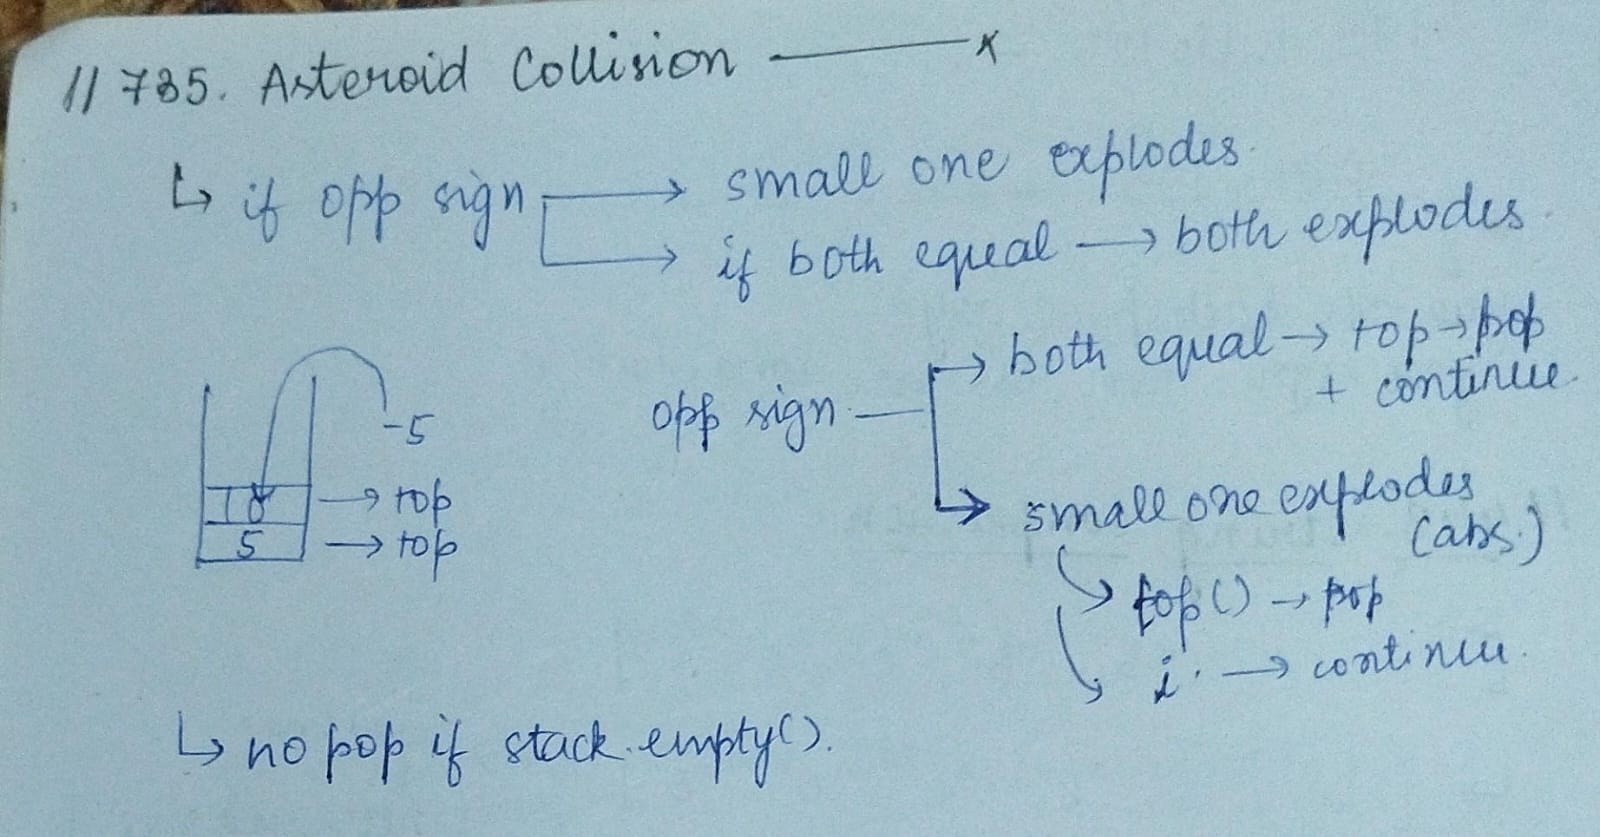 // 735. Asteroid Collision ——x
↳ if opp sign → small one explodes.
→ if both equal → both explodes.
opp sign → both equal → top → pop
+ continue.
-5
10 → top
5 → top
→ small one explodes
(abs.)
top() → pop
i. → continue.
↳ no pop if stack.empty().